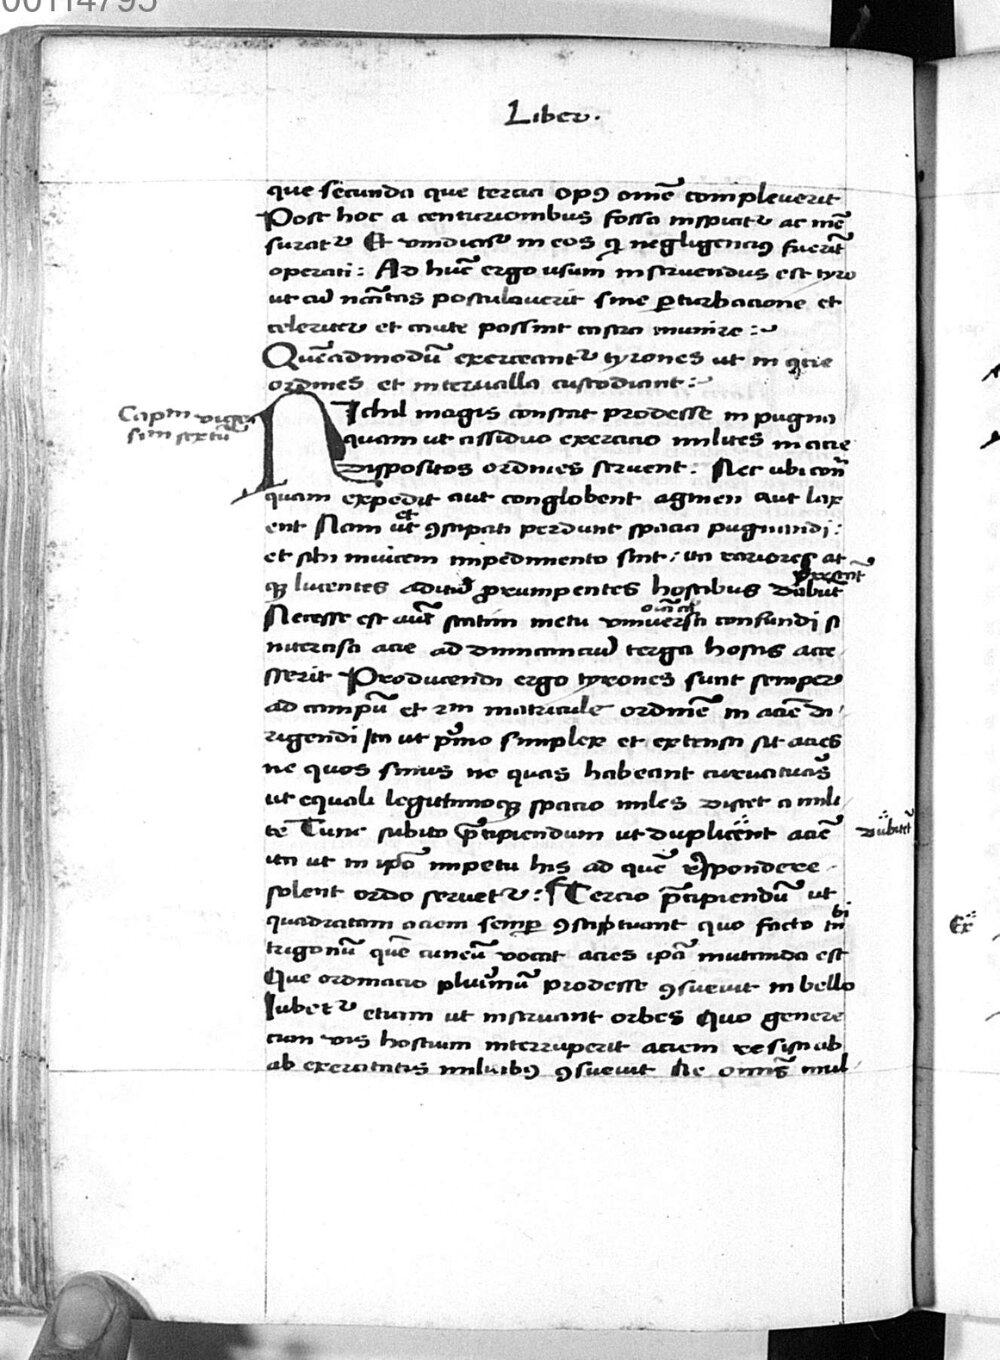 00114795
Liber.
que secunda que tercia opꝯ omē compleuerit
Post hoc a centurionibus fossa inspicit᷑ ac mē
surat᷑ Et vindicat᷑ in eos qͥ negligencius fuerīt
operati: Ad hūc ergo usum instruendus est tyro
ut cū nc̄citas postulauerit sine ꝑturbacione et
celeriter et caute possint castra munire :~
Quēadmodū exerceant᷑ tyrones ut in acie
ordines et interualla custodiant :~
Capm viges
sim sextū
NIchil magis constat prodesse in pugna
quam ut assiduo exercicio milites in acie
dispositos ordines seruent: Nec ubi con̄
quam expedit aut conglobent agmen aut lax
et
ent Nam ut ꝯstipati perdunt spacia pugnandi:
et sibi inuicem impedimento sint: ita rariores at
qꝫ lucentes aditū prorumpentes hostibus dabūt
Necesse est aut̄ statim metu vniuersa confundi si
intercisa acie ad dimicanciū terga hostis acce
sserit Producendi ergo tyrones sunt semper
ad campū et scdm matricule ordinē in aciē di
rigendi Ita ut pͥmo simplex et extensa sit acies
ne quos sinus ne quas habeant curuaturas
ut equali legitimoqꝫ spacio miles distet a mili
te Tunc subito p̄cipiendum ut duplicent aciē
ita ut in ipō impetu his ad quē respondere
solent ordo seruet᷑: Tercio p̄cipiendū ut
bi
quadratam aciem semꝑ ꝯstituant quo facto in
trigonū quē cuneū vocat acies ipā mutanda est
Que ordinacio plurimū prodesse ꝯsueuit in bello
Iubet᷑ etiam ut instruant orbes Quo genere
cum vis hostium interruperit aciem resisti ab
ab exercitatis militibꝯ ꝯsueuit Ne omīs mul
Ex